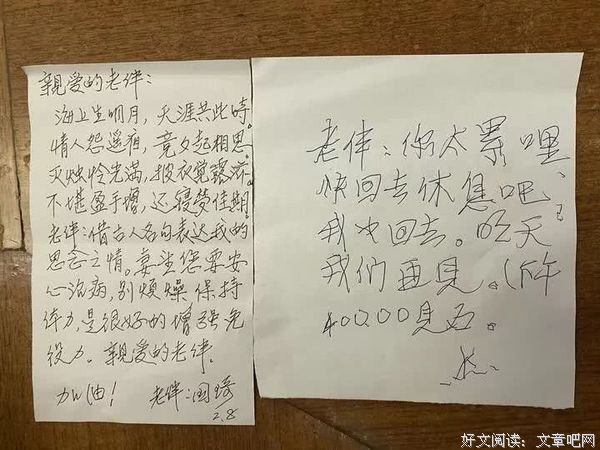 亲爱的老伴：
海上生明月，天涯共此时。
情人怨遥夜，竟夕起相思
灭烛怜光满，披衣觉露滋。
不堪盈手赠，还寝梦佳期。
老伴：借古人名句表达我的
思念之情。妻当您要安
心治病，别烦燥保持
体力，是很好的增强免
役力。亲爱的老伴，
加油！ 老伴：国琦
2.8
老伴：你太累哩、
快回去休息吧、
我也回去。
我们再见。
40000见
好文阅读：文章吧网